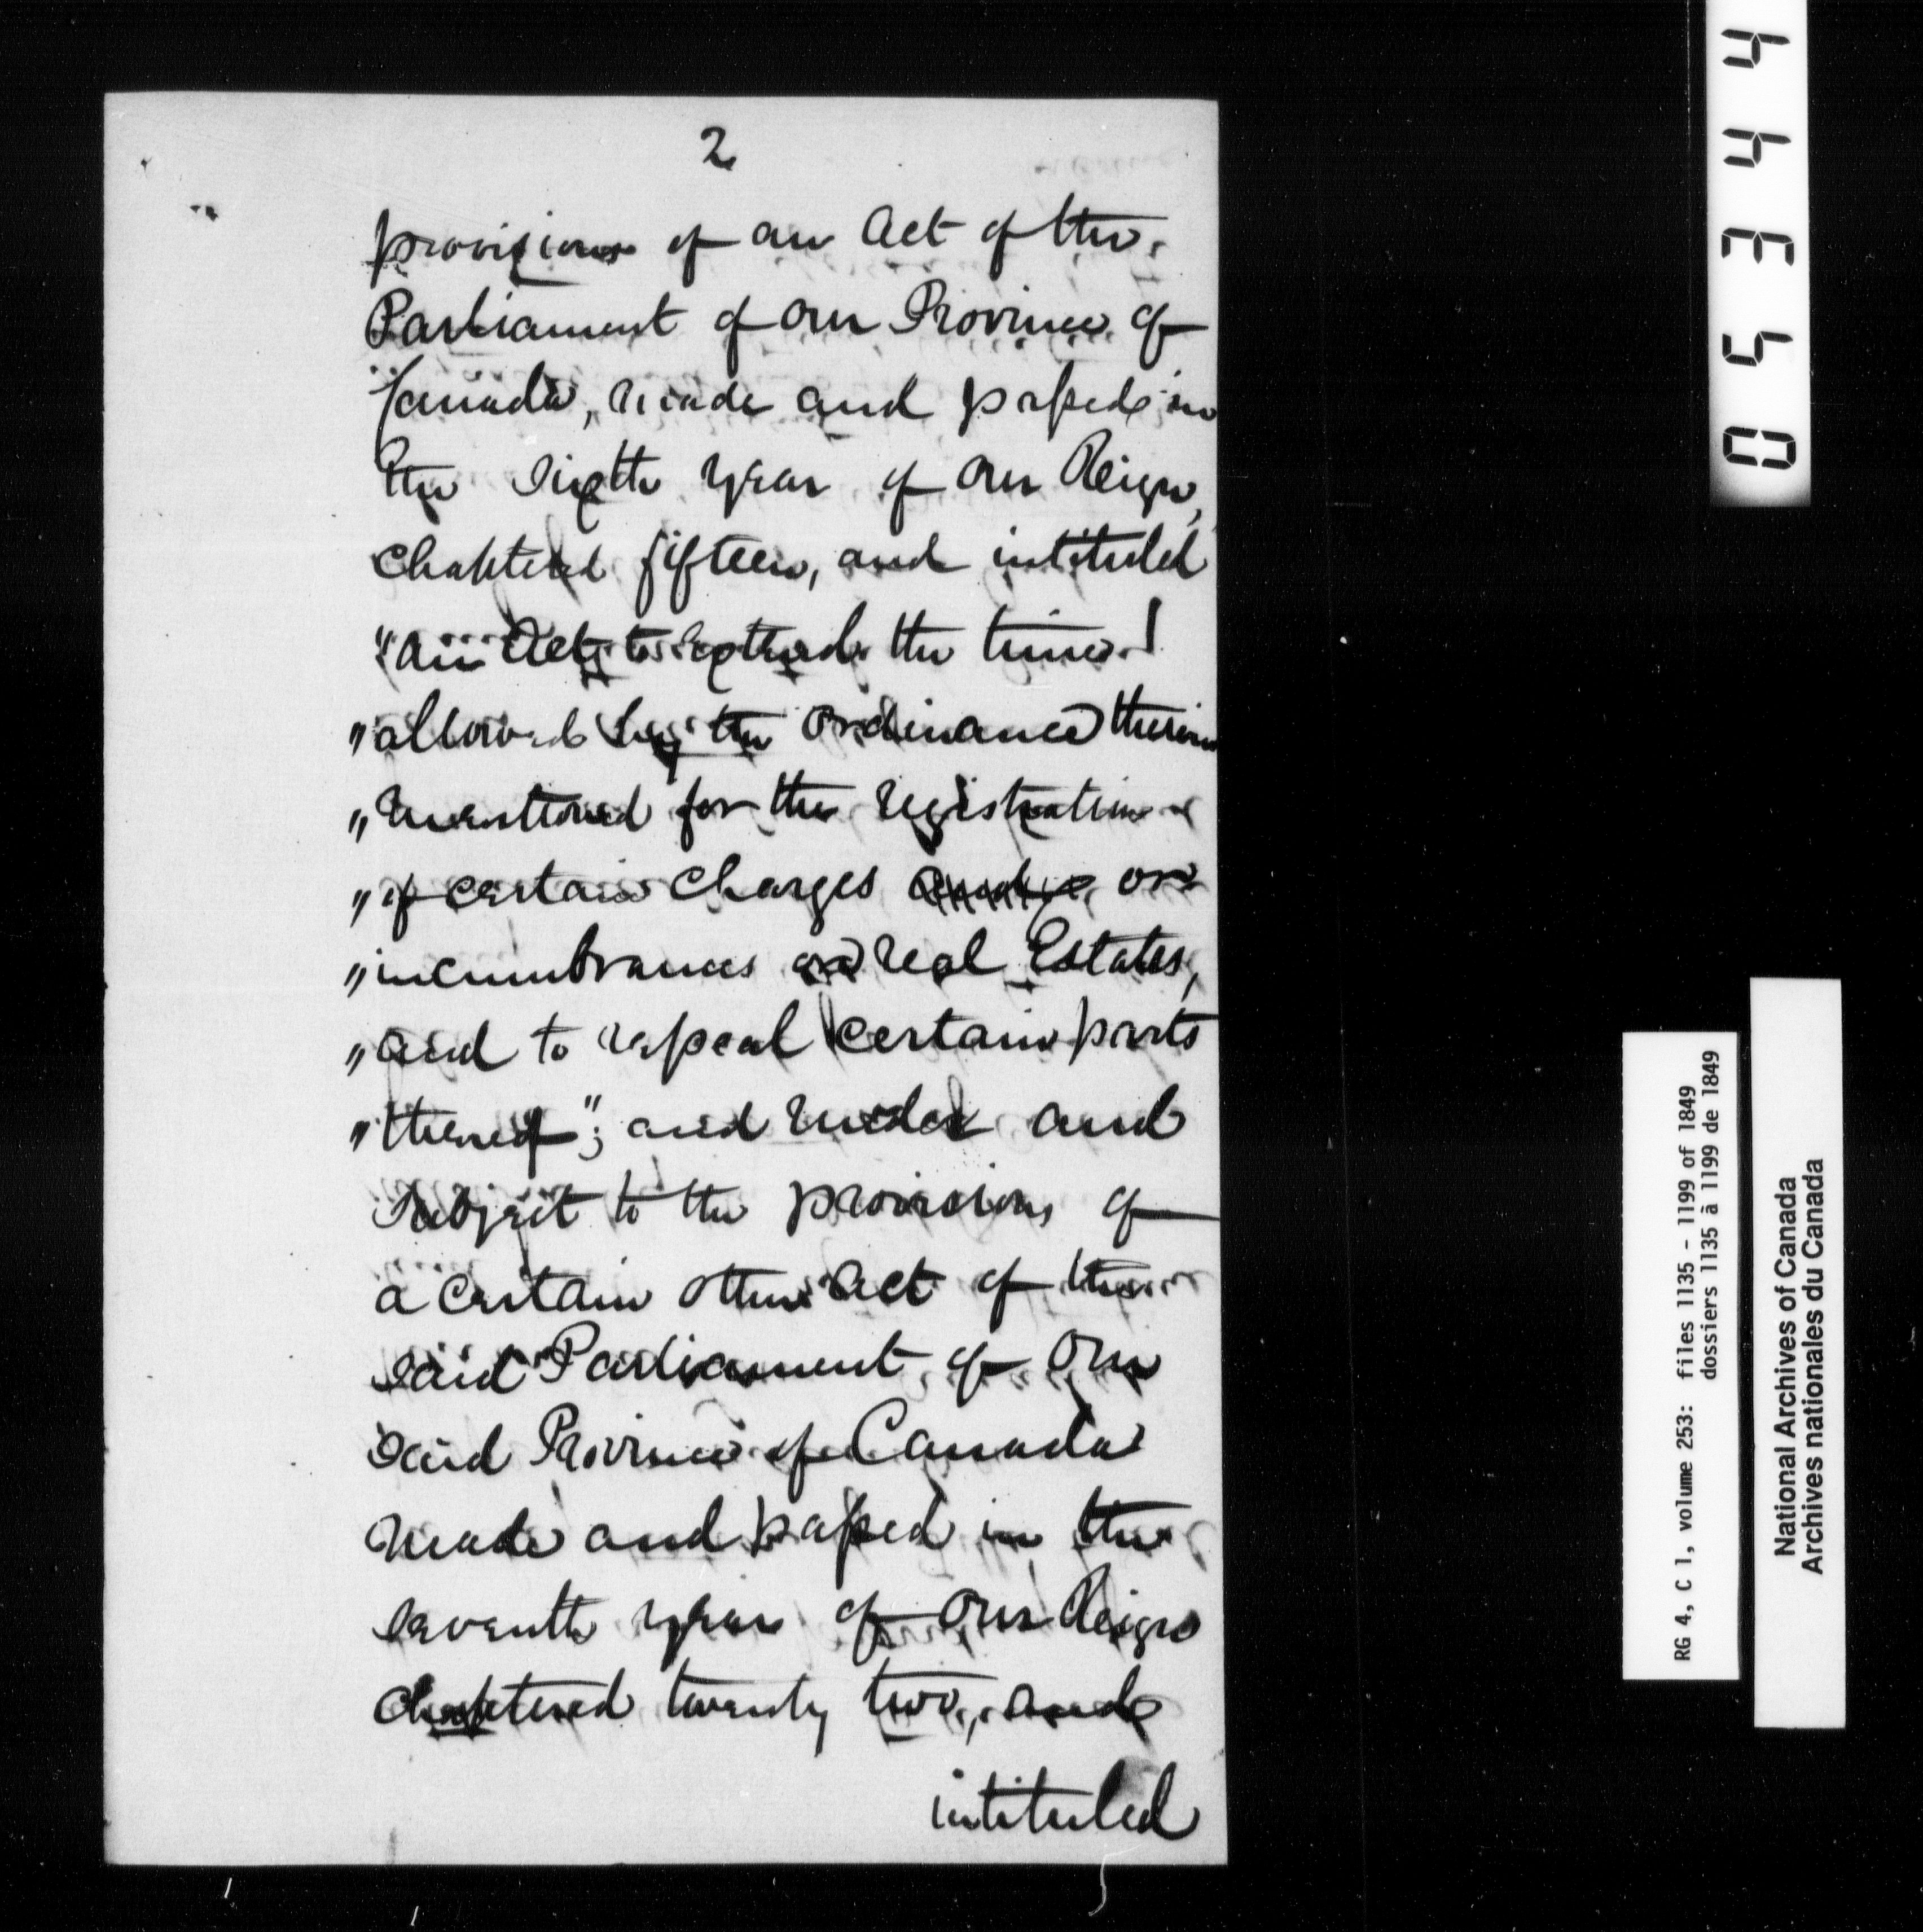 2
provisions of an Act of the
Parliament of our Province of
Canada, made and passed in
the sixth year of our Reign,
chaptered fifteen, and intituled
"An Act to extend the time
"allowed by the Ordinance therein
"mentioned for the registration
"of certain charges or
"incumbrances on real Estates,
"and to repeal certain parts
"thereof"; and under and
subject to the provisions of
a certain other Act of the
said Parliament of our
said Province of Canada
made and passed in the
seventh year of our Reign
chaptered twenty two, and
intituled
05344
RG 4, C 1, volume 253: files 1135 - 1199 of 1849
dossiers 1135 à 1199 de 1849
National Archives of Canada
Archives nationales du Canada